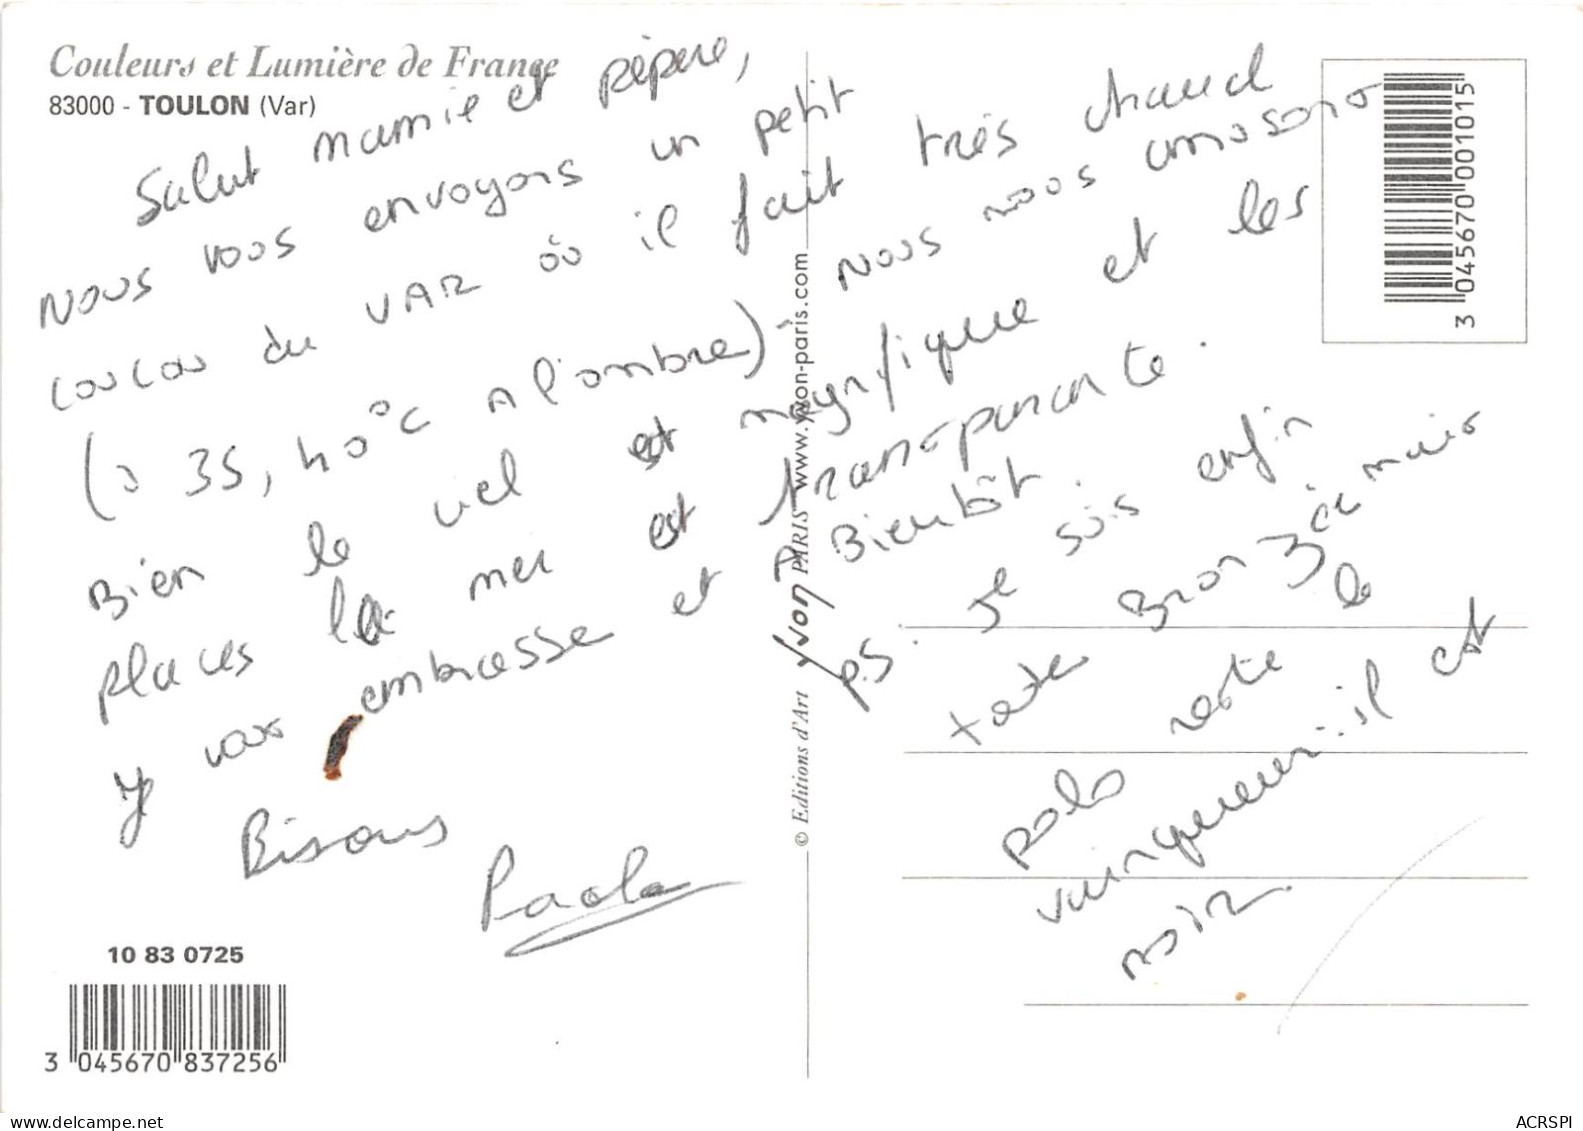 Couleurs et Lumière de France
83000 - TOULON (Var)
Salut mamie et pépere,
nous vous envoyons un petit
coucou du VAR où il fait très chaud
(à 35, 40°C A l'ombre)- nous nous amusons
Bien le ciel est magnifique et les
places la mer est transparante.
y vous embrasse et A Bientôt.
Bisous
Paola
ps. Je suis enfin
toute Bronzée mais
polo reste le
vainqueur: il est
noir.
© Editions d'Art Yvon PARIS www.yvon-paris.com
3 045670 001015
10 83 0725
3 045670 837256
ACRSPI